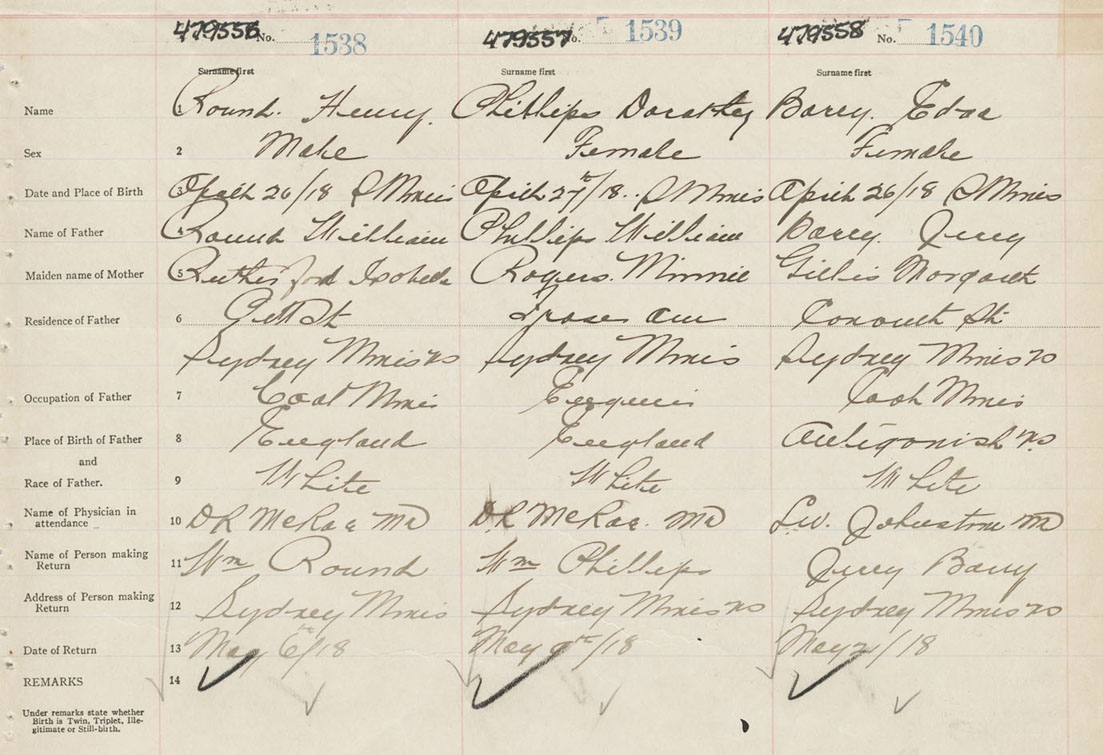 479556 No. 1538 479557 No. 1539 479558 No. 1540
Surname first Surname first Surname first
Name 1 Round. Henry. Phillips Dorothy Barry. Edna
Sex 2 Male Female Female
Date and Place of Birth 3 April 26/18 S Mines April 27th/18. S Mines April 26/18 S Mines
Name of Father 4 Round William Phillips William Barry. Jerry
Maiden name of Mother 5 Rutherford Isobella Rogers. Minnie Gillis Margaret
Residence of Father 6 Pitt St Fraser Ave St.
Sydney Mines NS Sydney Mines Sydney Mines NS
Occupation of Father 7 Coal Miner Coal Miner
Place of Birth of Father 8 England England Antigonish NS.
and
Race of Father. 9 White White White
Name of Physician in
attendance 10 DR McRae MD DR McRae. MD Johnstone MD
Name of Person making
Return 11 Wm Round Wm Phillips Jerry Barry
Address of Person making
Return 12 Sydney Mines Sydney Mines NS Sydney Mines NS
Date of Return 13 May 6th/18 May 9th/18 May 2/18
REMARKS 14
Under remarks state whether
Birth is Twin, Triplet, Ille-
gitimate or Still-birth.